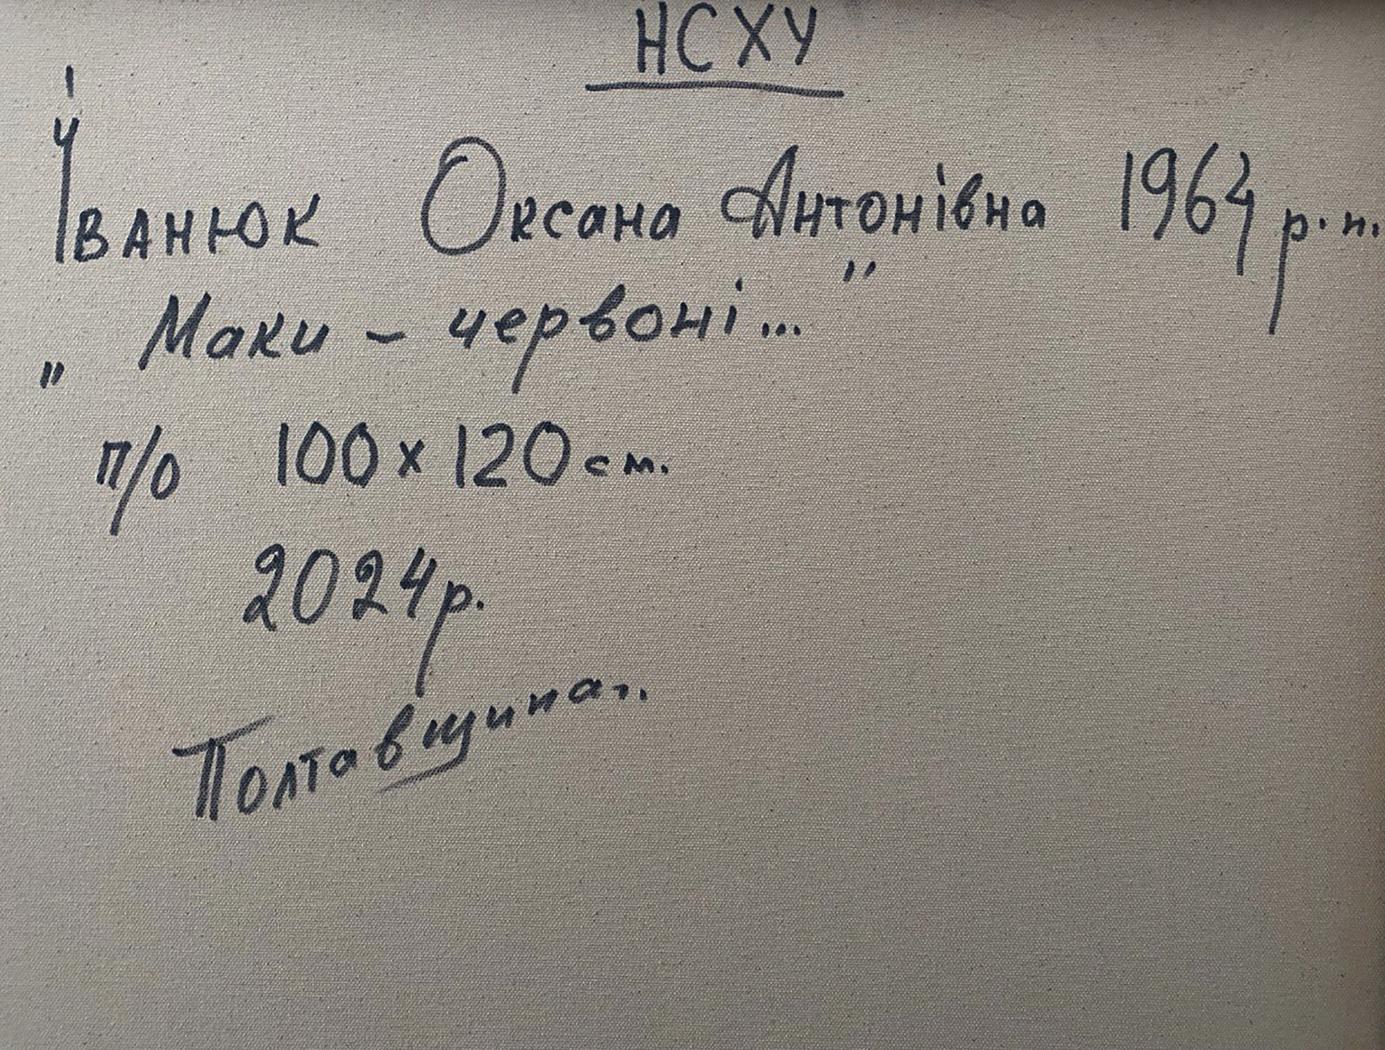 НСХУ
Іванюк Оксана Антонівна 1964 р.н.
„Маки – червоні..."
п/о 100 x 120 см.
2024 р.
Полтавщина..